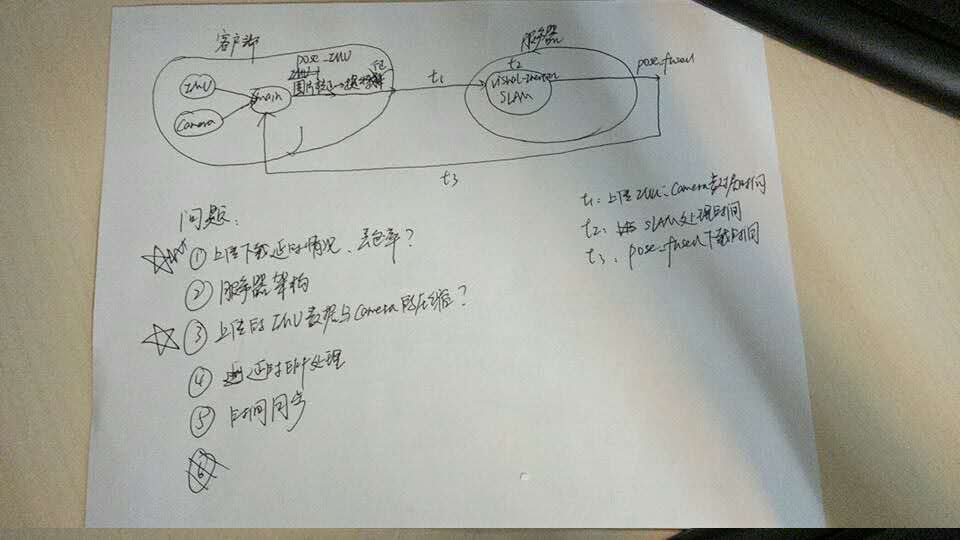 客户端
服务器
IMU
Camera
main
pose_IMU
图片
t₁
t₂
SLAM
pose_fused
t₃
t₁: 上传IMU、Camera数据时间
t₂: SLAM处理时间
t₃: pose_fused下载时间
问题:
① 上传下载延时情况、丢包率?
② 服务器架构
③ 上传的IMU数据与Camera的压缩?
④ 延时EKF处理
⑤ 时间同步
⑥